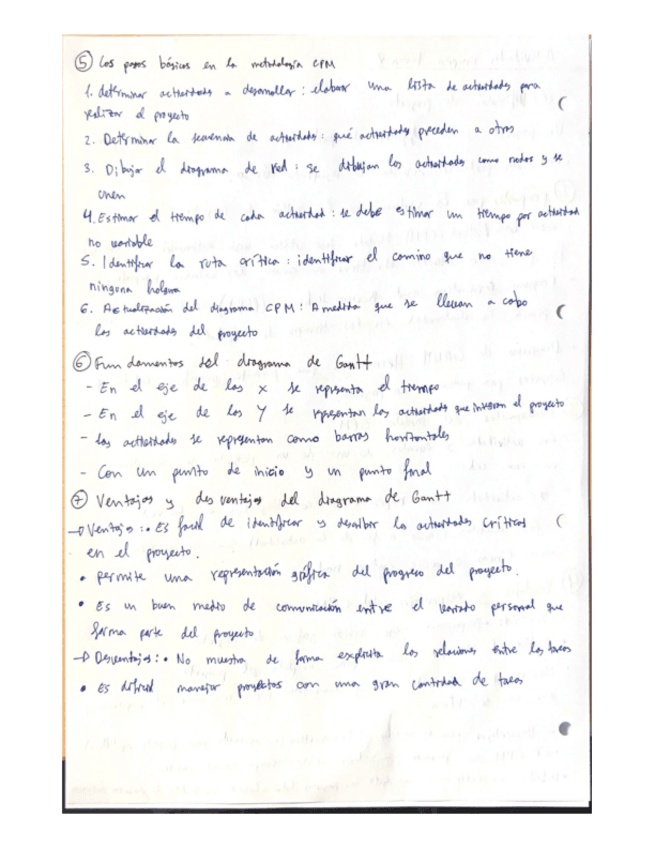 ⑤ Los pasos básicos en la metodología CPM
1. determinar actividades a desarrollar : elaborar una lista de actividades para
realizar el proyecto
2. Determinar la secuencia de actividades : qué actividades preceden a otras
3. Dibujar el diagrama de red : se dibujan las actividades como nodos y se
unen
4. Estimar el tiempo de cada actividad : se debe estimar un tiempo por actividad
no variable
5. Identificar la ruta crítica : identificar el camino que no tiene
ninguna holgura
6. Actualización del diagrama CPM : A medida que se llevan a cabo
las actividades del proyecto
⑥ Fundamentos del diagrama de Gantt
- En el eje de las X se representa el tiempo
- En el eje de las Y se representan las actividades que integran el proyecto
- las actividades se representan como barras horizontales
- Con un punto de inicio y un punto final
⑦ Ventajas y desventajas del diagrama de Gantt
→ Ventajas : • Es facil de identificar y describir las actividades críticas
en el proyecto.
• permite una representación gráfica del progreso del proyecto.
• Es un buen medio de comunicación entre el variado personal que
forma parte del proyecto
→ Desventajas : • No muestra de forma explicita las relaciones entre las tareas
• Es dificil manejar proyectos con una gran cantidad de tareas